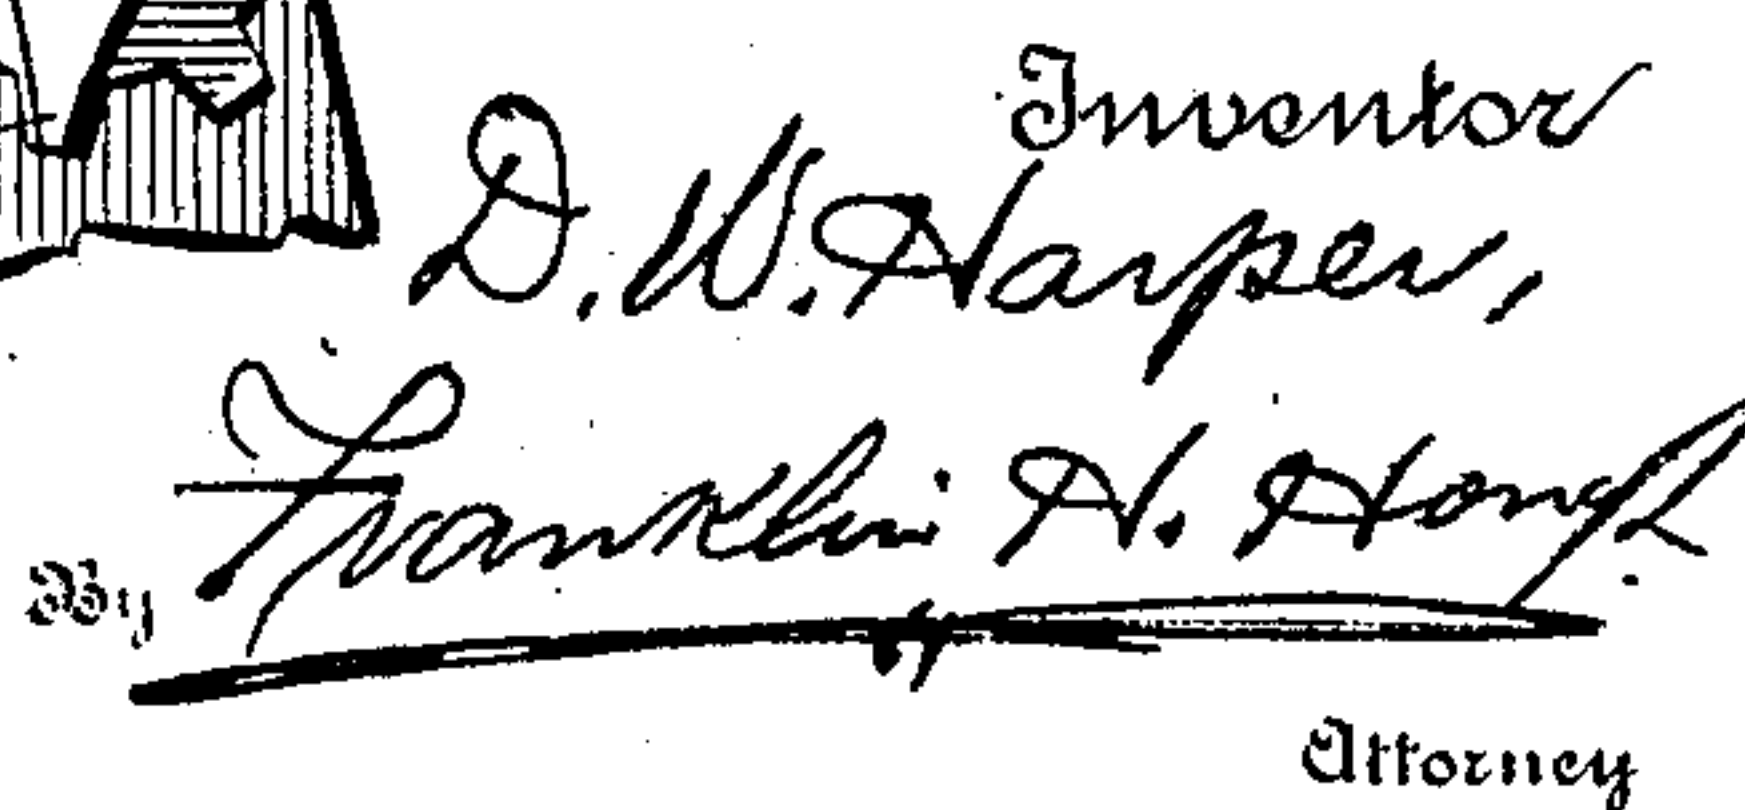 Inventor
D. W. Harper,
By Franklin H. Hough
Attorney